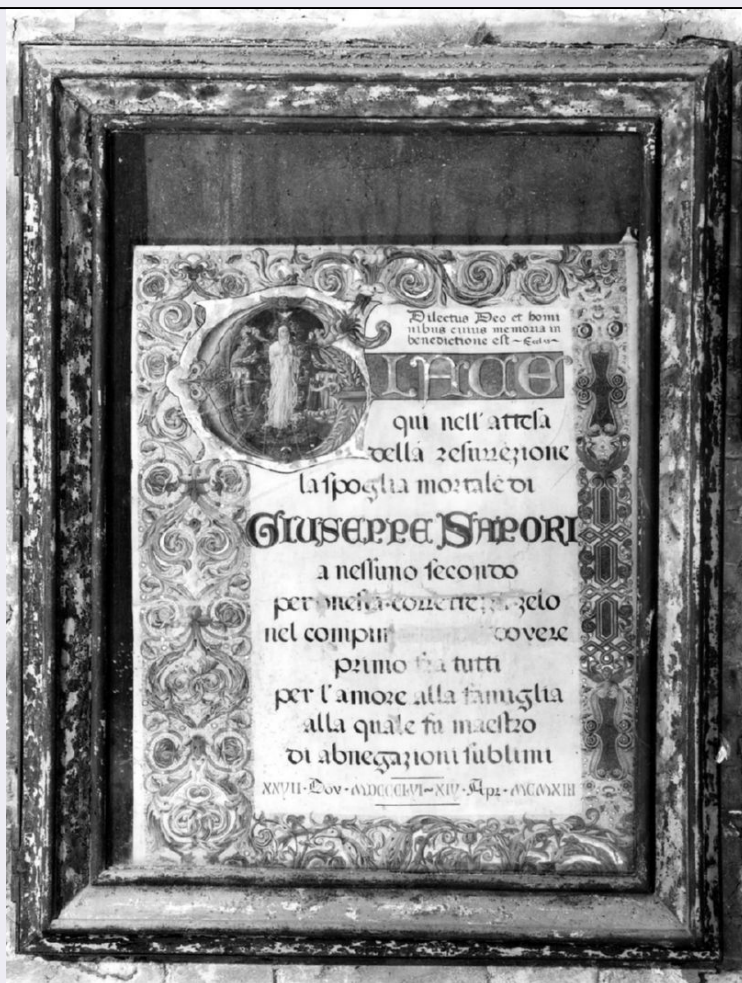 Dilectus Deo et homi
nibus cuius memoria in
benedictione est ~
GIACE
qui nell' attesa
della resurrezione
la spoglia mortale di
GIUSEPPE SAPORI
a nessuno secondo
per onestà·correttezza·zelo
nel dovere
primo fra tutti
per l'amore alla famiglia
alla quale fu maestro
di abnegazioni sublimi
XXVII·Nov·MDCCCLVI~XIV·Apr·MCMXIII